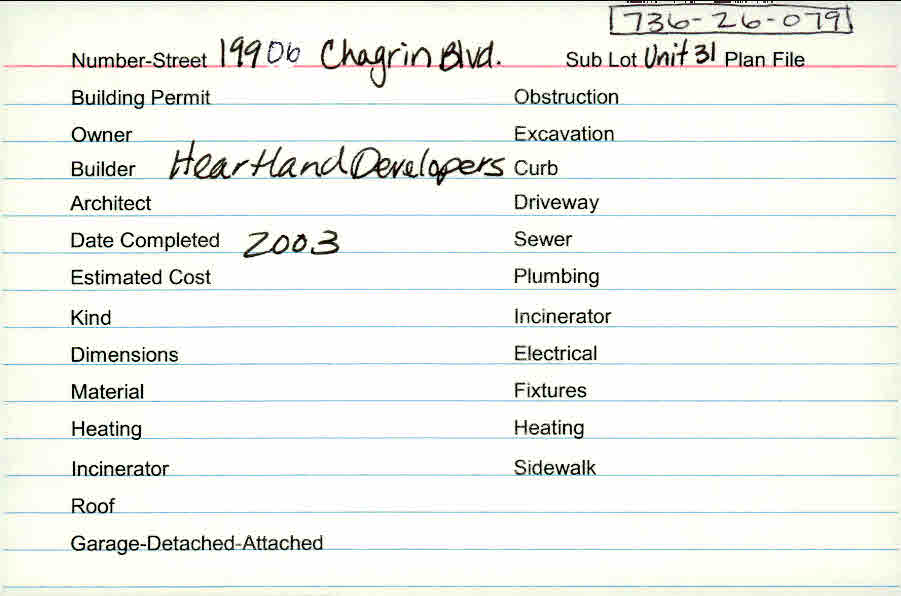 736-26-079
Number-Street 19906 Chagrin Blvd. Sub Lot Unit 31 Plan File
Building Permit Obstruction
Owner Excavation
Builder Heartland Developers Curb
Architect Driveway
Date Completed 2003 Sewer
Estimated Cost Plumbing
Kind Incinerator
Dimensions Electrical
Material Fixtures
Heating Heating
Incinerator Sidewalk
Roof
Garage-Detached-Attached